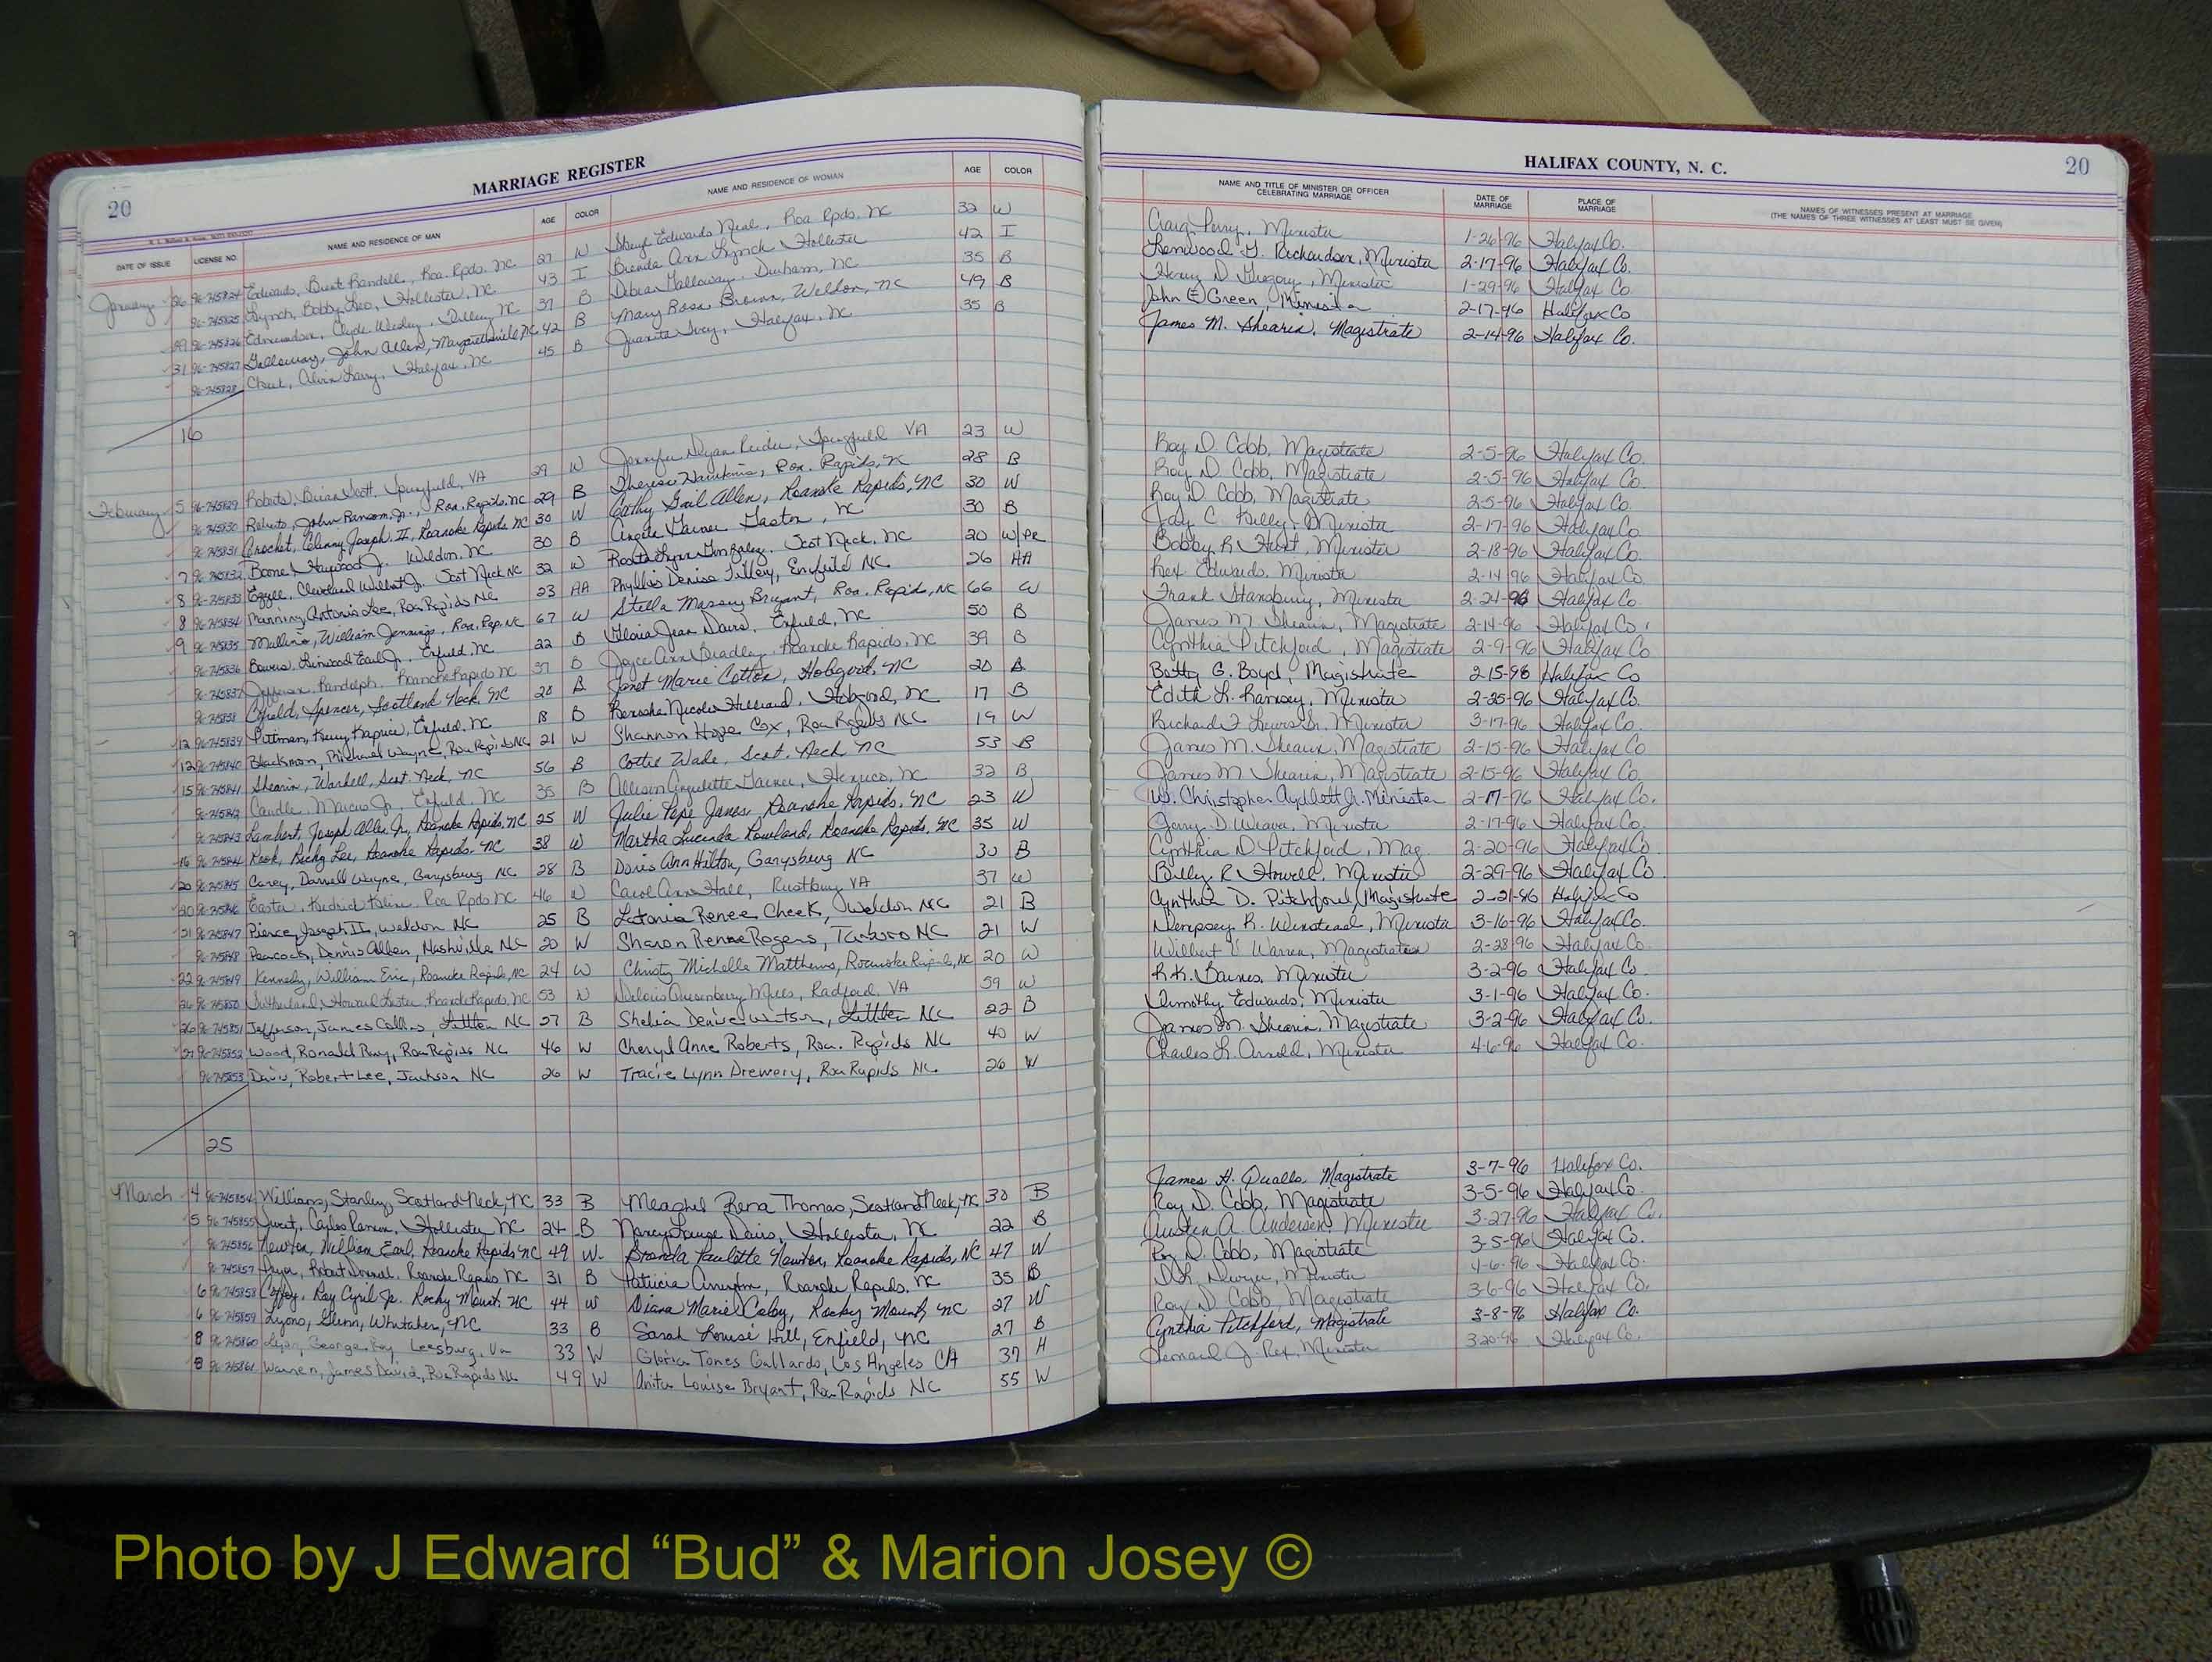 20
MARRIAGE REGISTER
DATE OF ISSUE LICENSE NO. NAME AND RESIDENCE OF MAN AGE COLOR NAME AND RESIDENCE OF WOMAN AGE COLOR
January 26 96-745824 Edwards, Brent Randell, Roa. Rpds. NC 27 W Edwards Neal, Roa Rpds. NC 32 W
96-745825 Lynch, Bobby Leo, Hollister, NC 43 I Brenda Ann Lynch Hollister 42 I
96-745826 Edmondson, Clyde Wesley, NC 37 B Debra Galloway, Durham, NC 35 B
31 96-745827 Galloway, John Allen, NC 42 B Mary Rosa Brown, Weldon, NC 49 B
96-745828 Cheek, Alvin Larry, Halifax, NC 45 B Juanita Ivey, Halifax, NC 35 B
16
February 5 96-745829 Roberts, Brian Scott, Springfield, VA 29 W Jennifer Springfield VA 23 W
96-745830 Roberts, John Ransom, Jr., Roa. Rapids, NC 29 B Theresa Hawkins, Roa. Rapids, NC 28 B
96-745831 Crochet, Joseph II, Roanoke Rapids NC 30 W Cathy Gail Allen, Roanoke Rapids, NC 30 W
7 96-745832 Boone, Haywood Jr. Weldon, NC 30 B Angela Garner Gaston, NC 30 B
8 96-745833 Cleveland Wilbert Jr. Scot Neck NC 32 W Lynn Gonzalez, Scot Neck, NC 20 W/PR
8 96-745834 Manning, Antonio Lee, Roa Rapids NC 23 AA Phyllis Denise Tilley, Enfield NC 26 AA
9 96-745835 Mullins, William Jennings, Roa. Rap. NC 67 W Stella Massey Bryant, Roa. Rapids, NC 66 W
96-745836 Linwood Earl Jr., Enfield, NC 22 B Gloria Jean Davis, Enfield, NC 50 B
96-745837 Jefferson, Randolph, Roanoke Rapids NC 37 B Joyce Ann Bradley, Roanoke Rapids, NC 39 B
96-745838 Spencer, Scotland Neck, NC 20 B Janet Marie Cotton, Hobgood, NC 20 B
12 96-745839 Pittman, Kerry Enfield, NC 18 B Nicole Hilliard, Hobgood, NC 17 B
12 96-745840 Blackmon, Michael Wayne, Roa Rapids NC 21 W Shannon Hope Cox, Roa Rapids NC 19 W
15 96-745841 Shearin, Scot. Neck, NC 56 B Cottie Wade, Scot. Neck NC 53 B
96-745842 Caudle, Marcus Jr., Enfield, NC 35 B Allison Garner, Henrico, NC 32 B
96-745843 Lambert, Joseph Allen Jr, Roanoke Rapids, NC 25 W Julie Pape Jones, Roanoke Rapids, NC 23 W
16 96-745844 Kook, Ricky Lee, Roanoke Rapids, NC 38 W Martha Lucinda Rowland, Roanoke Rapids, NC 35 W
20 96-745845 Carey, Darnell Wayne, Garysburg NC 28 B Doris Ann Hilton, Garysburg NC 30 B
20 96-745846 Easter, Kedrick Roa Rpds NC 46 W Carol Ann Hall, Rustburg VA 37 W
21 96-745847 Pierce, Joseph II, Weldon NC 25 B Latonia Renee Cheek, Weldon NC 21 B
96-745848 Peacock, Dennis Allen, Nashville NC 20 W Sharon Renee Rogers, Tarboro NC 21 W
22 96-745849 Kennedy, William Eric, Roanoke Rapids, NC 24 W Christy Michelle Matthews, Roanoke Rapids, NC 20 W
26 96-745850 Sutherland, Howard Lester, Roanoke Rapids, NC 53 W Delois Quesenberry Mills, Radford, VA 59 W
26 96-745851 Jefferson, James Collins, Littleton NC 27 B Shelia Denise Watson, Littleton NC 22 B
27 96-745852 Wood, Ronald Roa Rapids NC 46 W Cheryl Anne Roberts, Roa. Rapids NC 40 W
96-745853 Davis, Robert Lee, Jackson NC 26 W Tracie Lynn Drewery, Roa Rapids NC 26 W
25
March 4 96-745854 Williams, Stanley, Scotland Neck, NC 33 B Rena Thomas, Scotland Neck, NC 30 B
5 96-745855 Hollister NC 24 B Nancy Davis, Hollister, NC 22 B
96-745856 Newton, William Earl, Roanoke Rapids NC 49 W Brenda Paulette Newton, Roanoke Rapids, NC 47 W
96-745857 Roanoke Rapids NC 31 B Patricia Roanoke Rapids, NC 35 B
6 96-745858 Coffey, Ray Cyril Jr. Rocky Mount, NC 44 W Diana Marie Rocky Mount, NC 27 W
6 96-745859 Lyons, Glenn, Whitakers, NC 33 B Sarah Louise Hill, Enfield, NC 27 B
8 96-745860 George Roy Leesburg, Va 33 W Gloria Gallardo, Los Angeles CA 37 H
8 96-745861 Warren, James David, Roa Rapids NC 49 W Anita Louise Bryant, Roa Rapids NC 55 W
HALIFAX COUNTY, N. C. 20
NAME AND TITLE OF MINISTER OR OFFICER CELEBRATING MARRIAGE DATE OF MARRIAGE PLACE OF MARRIAGE NAMES OF WITNESSES PRESENT AT MARRIAGE
(THE NAMES OF THREE WITNESSES AT LEAST MUST BE GIVEN)
Craig Perry, Minister 1-26-96 Halifax Co.
Lenwood G. Richardson, Minister 2-17-96 Halifax Co.
Henry D. Gregory, Minister 1-29-96 Halifax Co
John E Green, Minister 2-17-96 Halifax Co
James M. Shearin, Magistrate 2-14-96 Halifax Co.
Roy D. Cobb, Magistrate 2-5-96 Halifax Co.
Roy D. Cobb, Magistrate 2-5-96 Halifax Co.
Roy D. Cobb, Magistrate 2-5-96 Halifax Co
Jay C. Kelly, Minister 2-17-96 Halifax Co
Bobby R. Hurst, Minister 2-18-96 Halifax Co.
Rex Edwards, Minister 2-14-96 Halifax Co.
Frank Stansbury, Minister 2-24-96 Halifax Co.
James M Shearin, Magistrate 2-14-96 Halifax Co.
Cynthia Pitchford, Magistrate 2-9-96 Halifax Co
Betty G. Boyd, Magistrate 2-15-96 Halifax Co
Edith L. Ramsey, Minister 2-25-96 Halifax Co.
Richard F Lewis Sr. Minister 3-17-96 Halifax Co.
James M. Shearin, Magistrate 2-15-96 Halifax Co
James M Shearin, Magistrate 2-15-96 Halifax Co.
W. Christopher Aydlett Jr. Minister 2-17-96 Halifax Co.
Jerry D. Weaver, Minister 2-17-96 Halifax Co.
Cynthia D Pitchford, Mag. 2-20-96 Halifax Co.
Billy R. Howell, Minister 2-29-96 Halifax Co.
Cynthia D. Pitchford, Magistrate 2-21-86 Halifax Co
Dempsey R. Winstead, Minister 3-16-96 Halifax Co.
Wilbert V. Warren, Magistrate 2-28-96 Halifax Co.
R.K. Barnes, Minister 3-2-96 Halifax Co.
Timothy Edwards, Minister 3-1-96 Halifax Co.
James M. Shearin, Magistrate 3-2-96 Halifax Co.
Charles L. Arnold, Minister 4-6-96 Halifax Co.
James H. Qualls Magistrate 3-7-96 Halifax Co.
Roy D. Cobb, Magistrate 3-5-96 Halifax Co.
Austin A. Anderson, Minister 3-27-96 Halifax Co.
Roy D. Cobb, Magistrate 3-5-96 Halifax Co.
Minister 4-6-96 Halifax Co.
Roy D. Cobb Magistrate 3-6-96 Halifax Co.
Cynthia Pitchford, Magistrate 3-8-96 Halifax Co.
J. Rex, Minister 3-20-96 Halifax Co.
Photo by J Edward “Bud” & Marion Josey ©